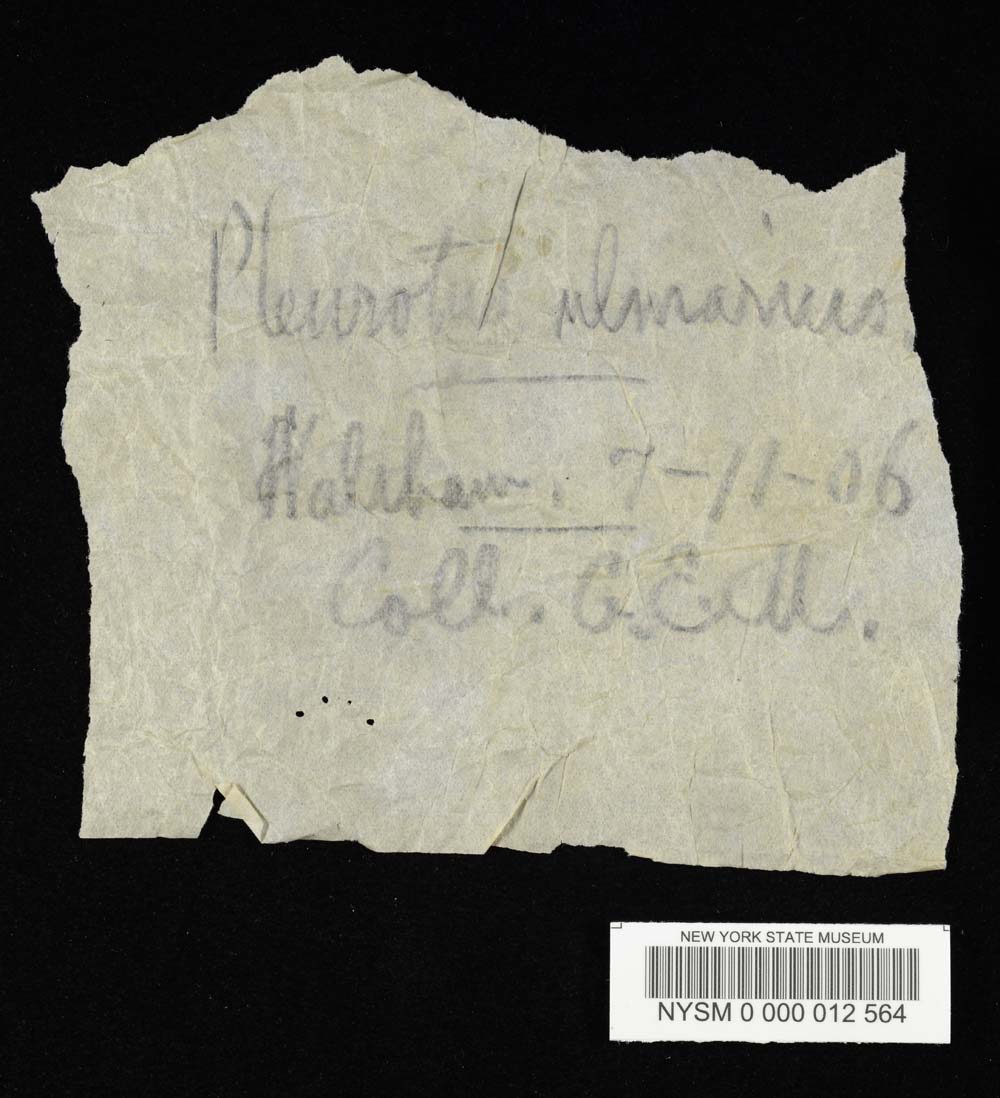 Pleurotus ulmarius
Waltham. 7-11-06
Coll. G.E.M.
NEW YORK STATE MUSEUM
NYSM 0 000 012 564